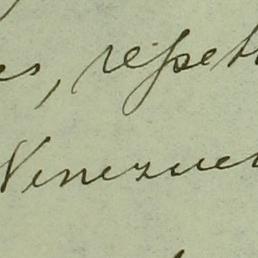 es, repet
Venezuel